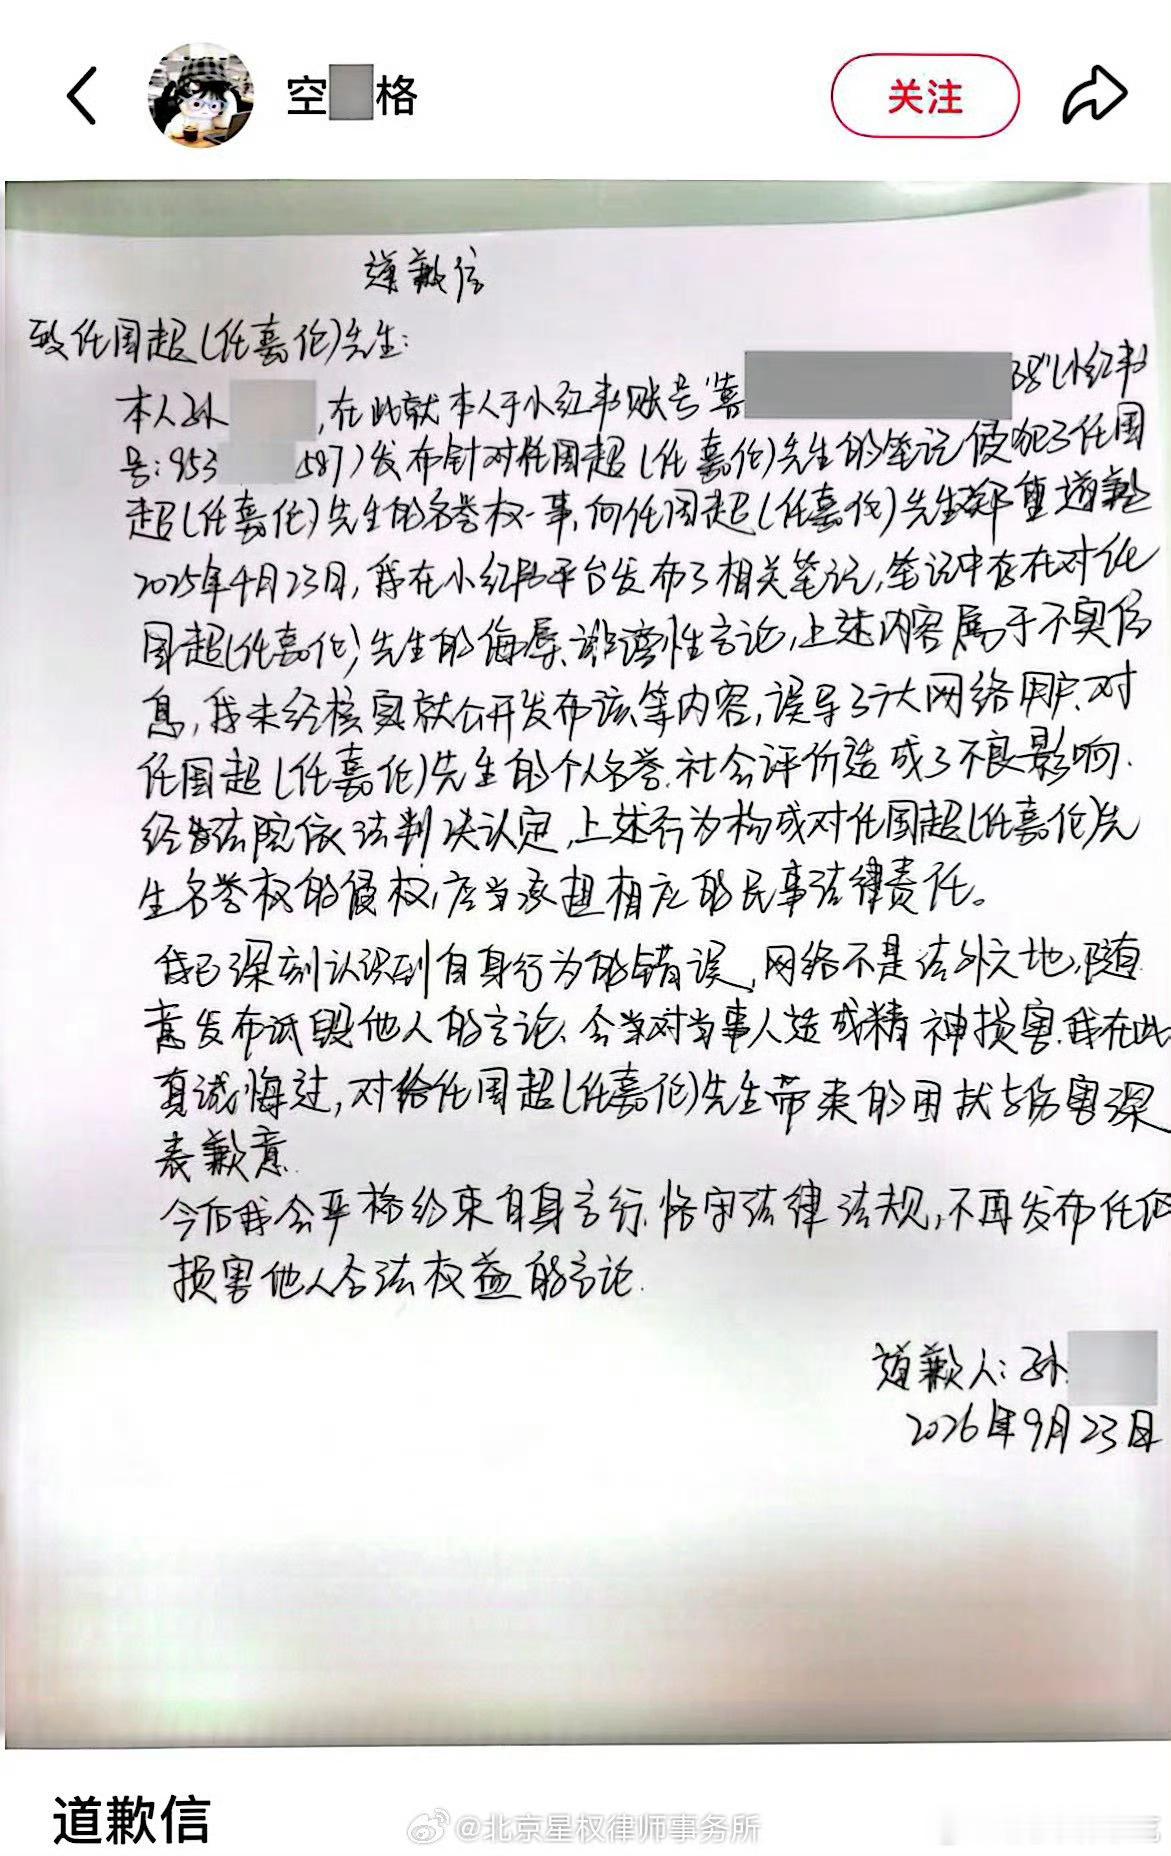 空 格
关注
道歉信
致任国超(任嘉伦)先生:
本人孙 ,在此就本人于小红书账号"喜 38"(小红书
号:953 587)发布针对任国超(任嘉伦)先生的笔记侵犯了任国
超(任嘉伦)先生的名誉权一事,向任国超(任嘉伦)先生郑重道歉
2025年4月23日,我在小红书平台发布了相关笔记,笔记中存在对任
国超(任嘉伦)先生的侮辱、诽谤性言论,上述内容属于不实信
息,我未经核实就公开发布该等内容,误导了广大网络用户,对
任国超(任嘉伦)先生的个人名誉、社会评价造成了不良影响.
经法院依法判决认定,上述行为构成对任国超(任嘉伦)先
生名誉权的侵权,应当承担相应的民事法律责任。
我已深刻认识到自身行为的错误,网络不是法外之地,随
意发布诋毁他人的言论、会当对当事人造成精神损害.我在此
真诚悔过,对给任国超(任嘉伦)先生带来的困扰与伤害深
表歉意.
今后我会严格约束自身言行、恪守法律法规,不再发布任何
损害他人合法权益的言论.
道歉人:孙
2026年9月23日
道歉信
@北京星权律师事务所